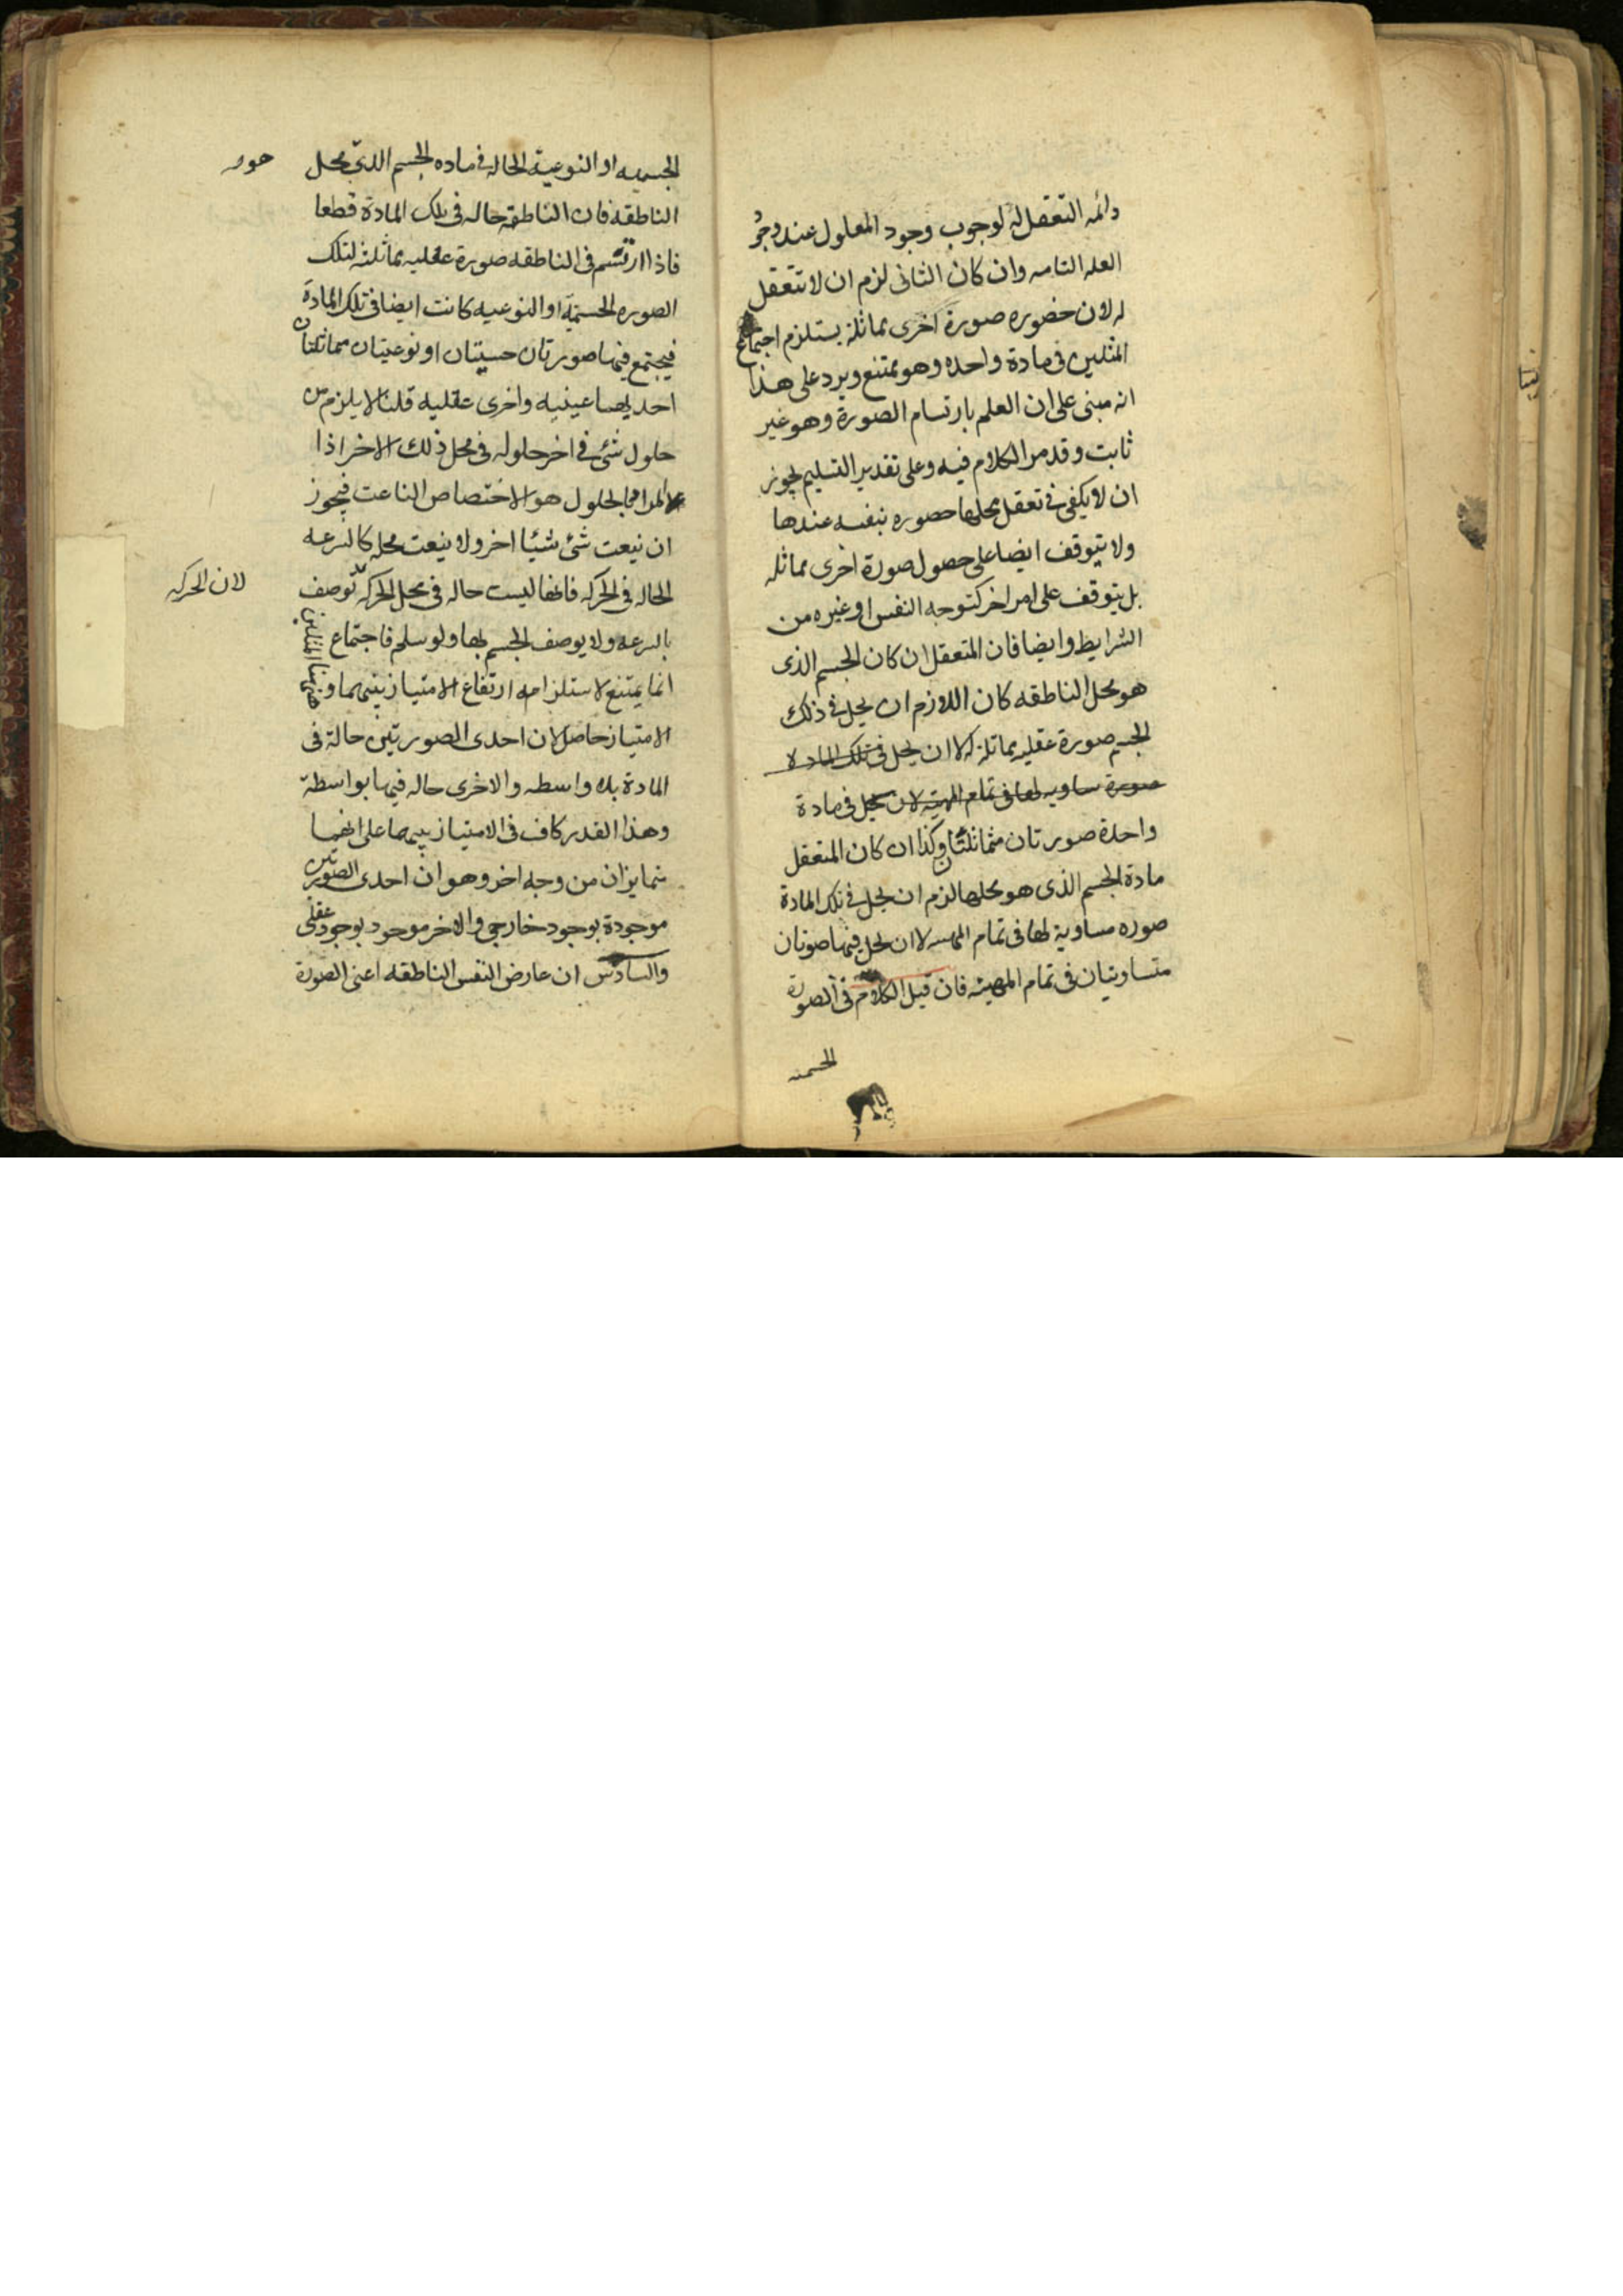 دائمه التعقل له لوجوب وجود المعلول عند وجو
العله التامه وان كان الثانى لزم ان لا تتعقل
له لان حضوره صورة اخرى مماثلة يستلزم اجتماع
المثلين فى مادة واحده وهو ممتنع ويرد على هذا
انه مبنى على ان العلم بارتسام الصورة وهو غير
ثابت وقد مر الكلام فيه وعلى تقدير التسليم يجوز
ان لا يكفى فى تعقل محلها حضوره بنفسه عندها
ولا يتوقف ايضا على حصول صورة اخرى مماثله
بل يتوقف على امر اخر كتوجه النفس او غيره من
الشرايط وايضا فان المتعقل ان كان الجسم الذى
هو محل الناطقه كان اللازم ان يحل فى ذلك
الجسم صورة عقليه مماثلة له لا ان يحل فى تلك المادة
صورة مساويه لها فى تمام المهية لا ان يحل فى مادة
واحدة صورتان متماثلتان وكذا ان كان المتعقل
مادة الجسم الذى هو محلها لزم ان يحل فى تلك المادة
صوره مساوية لها فى تمام المهيه لا ان يحل فيها صورتان
متساويتان فى تمام المهية فان قيل الكلام فى الصورة
الجسميه
الجسميه او النوعية الحاله فى ماده الجسم الذى محل
هو
الناطقه فان الناطقه حاله فى تلك المادة قطعا
فاذا ارتسم فى الناطقه صورة عقليه مماثلة لتلك
الصوره الجسمية او النوعيه كانت ايضا فى تلك المادة
فيجتمع فيها صورتان جسميتان او نوعيتان متماثلتان
احديهما عينيه واخرى عقليه قلنا لا يلزم من
حلول شئ فى اخر حلوله فى محل ذلك الاخر اذا
المراد بالحلول هو الاختصاص الناعت فيجوز
ان ينعت شئ شيئا اخر ولا ينعت محله كالسرعه
الحاله فى الحركه فانها ليست حاله فى محل الحركه توصف
لان الحركه
بالسرعه ولا يوصف الجسم بها ولو سلم فاجتماع المثلين
انما يمتنع لاستلزامه ارتفاع الامتياز بينهما وههنا
الامتياز حاصل لان احدى الصورتين حالة فى
المادة بلا واسطه والاخرى حاله فيها بواسطة
وهذا القدر كاف فى الامتياز بينهما على انهما
متمايزان من وجه اخر وهو ان احدى الصورتين
موجودة بوجود خارجى والاخر موجود بوجود عقلى
والسادس ان عارض النفس الناطقه اعنى الصورة